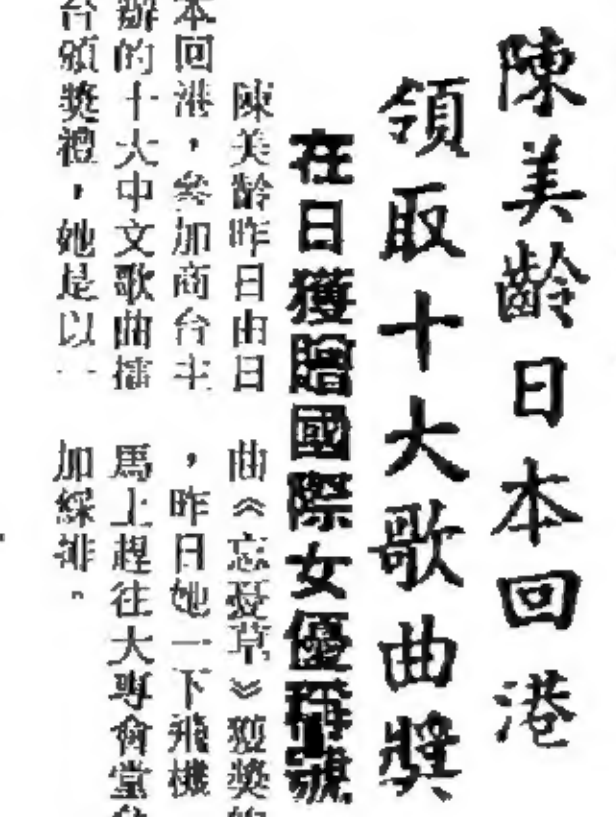 陳美齡日本回港
領取十大歌曲獎
在日獲贈國際女優稱號
陳美齡昨日由日
本回港，參加商台主
辦的十大中文歌曲擂
台頒獎禮，她是以一
曲《忘憂草》獲獎的
，昨日她一下飛機
馬上趕往大專會堂參
加綵排。